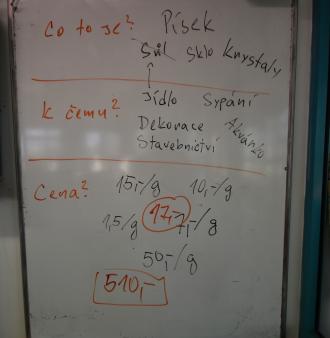 Co to je? Písek
Sůl sklo Krystaly
K čemu? Jídlo Sypání
Dekorace Akvárko
Stavebnictví
Cena? 15,-/g 10,-/g
1,5/g 17,- 7,-/g
50,-/g
510,-